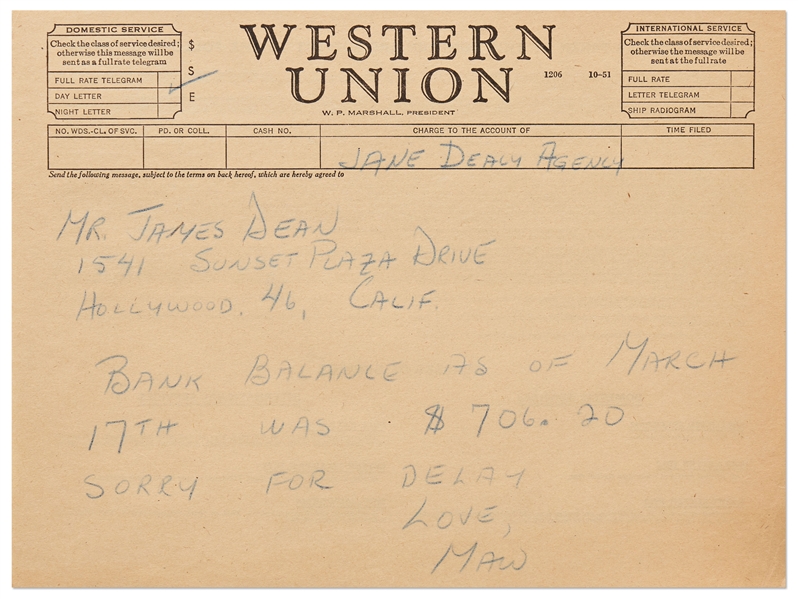 DOMESTIC SERVICE
Check the class of service desired;
otherwise this message will be
sent as a full rate telegram
FULL RATE TELEGRAM
DAY LETTER
NIGHT LETTER
$
S
E
WESTERN
UNION
1206 10-51
W. P. MARSHALL, PRESIDENT
INTERNATIONAL SERVICE
Check the class of service desired;
otherwise the message will be
sent at the full rate
FULL RATE
LETTER TELEGRAM
SHIP RADIOGRAM
NO. WDS.-CL. OF SVC. PD. OR COLL. CASH NO. CHARGE TO THE ACCOUNT OF TIME FILED
JANE DEACY AGENCY
Send the following message, subject to the terms on back hereof, which are hereby agreed to
MR. JAMES DEAN
1541 SUNSET PLAZA DRIVE
HOLLYWOOD. 46, CALIF.
BANK BALANCE AS OF MARCH
17TH WAS $706.20
SORRY FOR DELAY
LOVE,
MAW